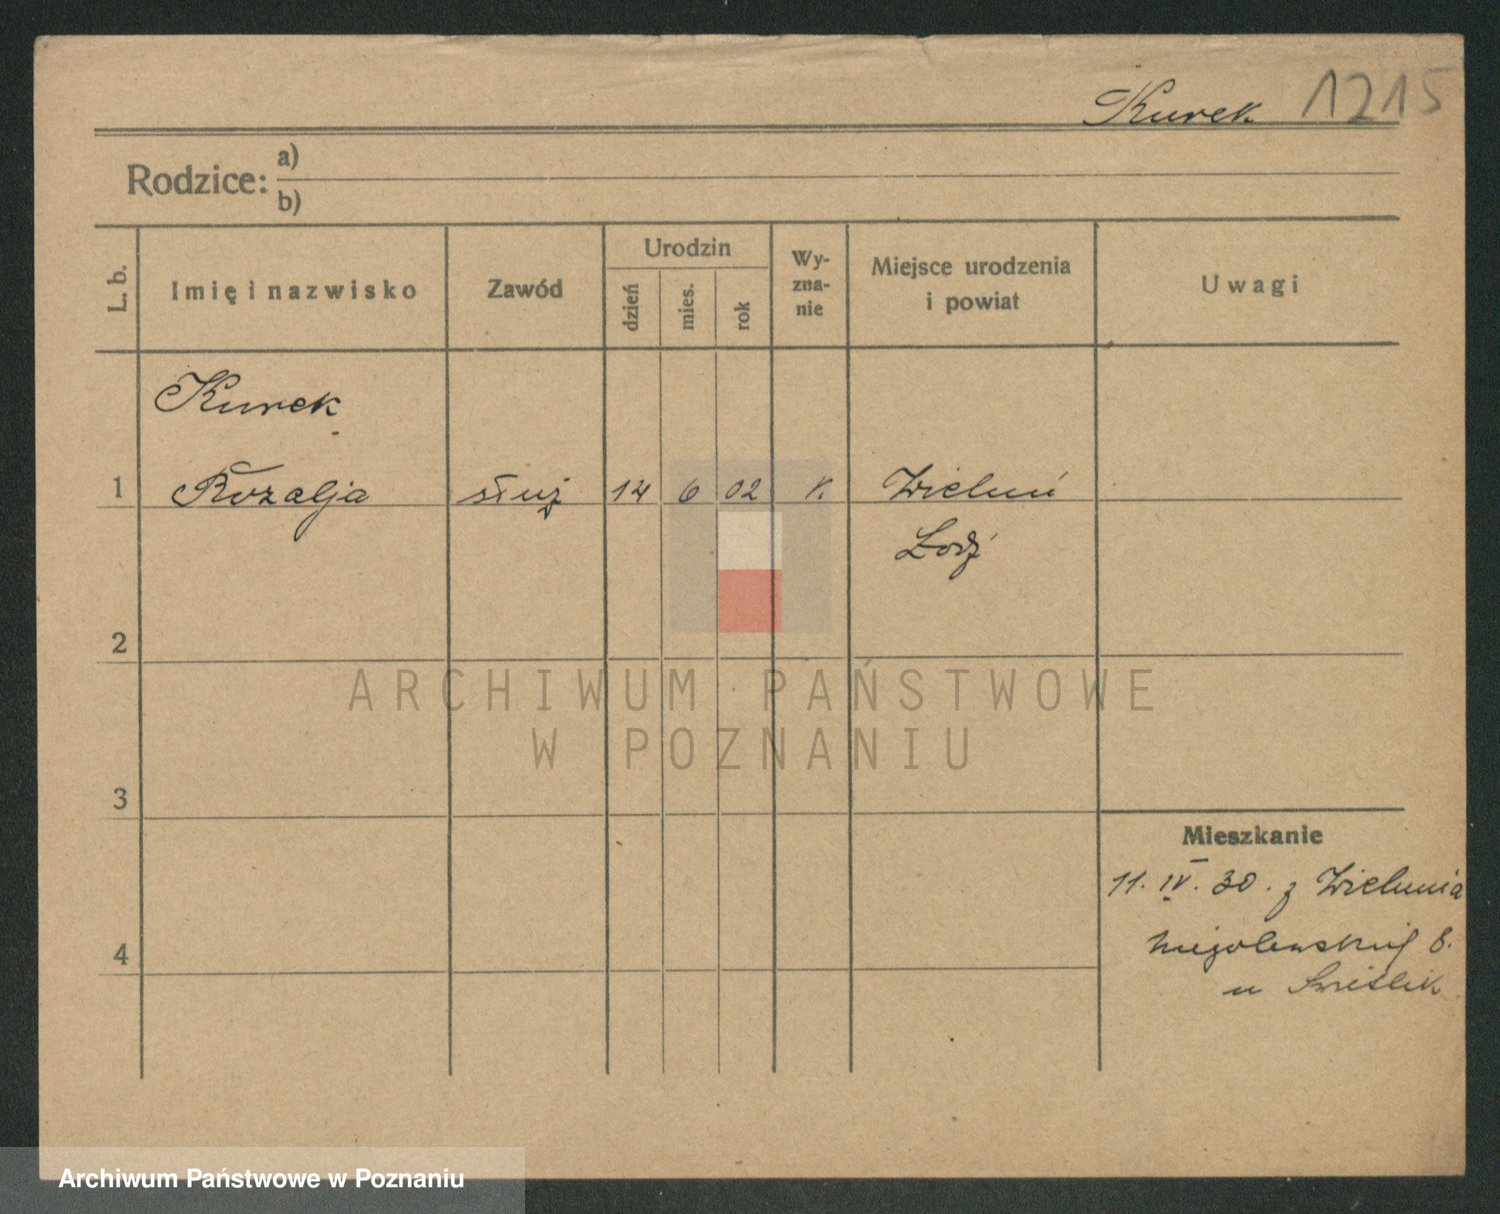 Kurek 1215
Rodzice: a)
b)
L. b.
Imię i nazwisko
Zawód
Urodzin
dzień
mies.
rok
Wy-
zna-
nie
Miejsce urodzenia
i powiat
Uwagi
Kurek
1 Rozalja służ 14 6 02 k. Wieluń
Łodź
2
3
4
Mieszkanie
11. IV. 30. z Wielunia
8.
u
ARCHIWUM PAŃSTWOWE
W POZNANIU
Archiwum Państwowe w Poznaniu